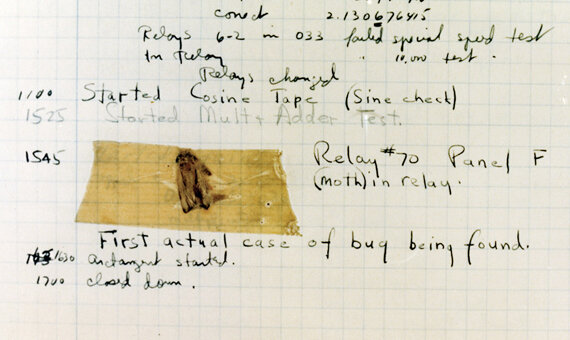 correct 2.130676415
Relays 6-2 in 033 failed special speed test
In Relay " 10,000 test .
Relays changed
1100 Started Cosine Tape (Sine check)
1525 Started Mult + Adder Test.
1545 Relay #70 Panel F
(moth) in relay.
First actual case of bug being found.
1630 arctangent started.
1700 closed down.